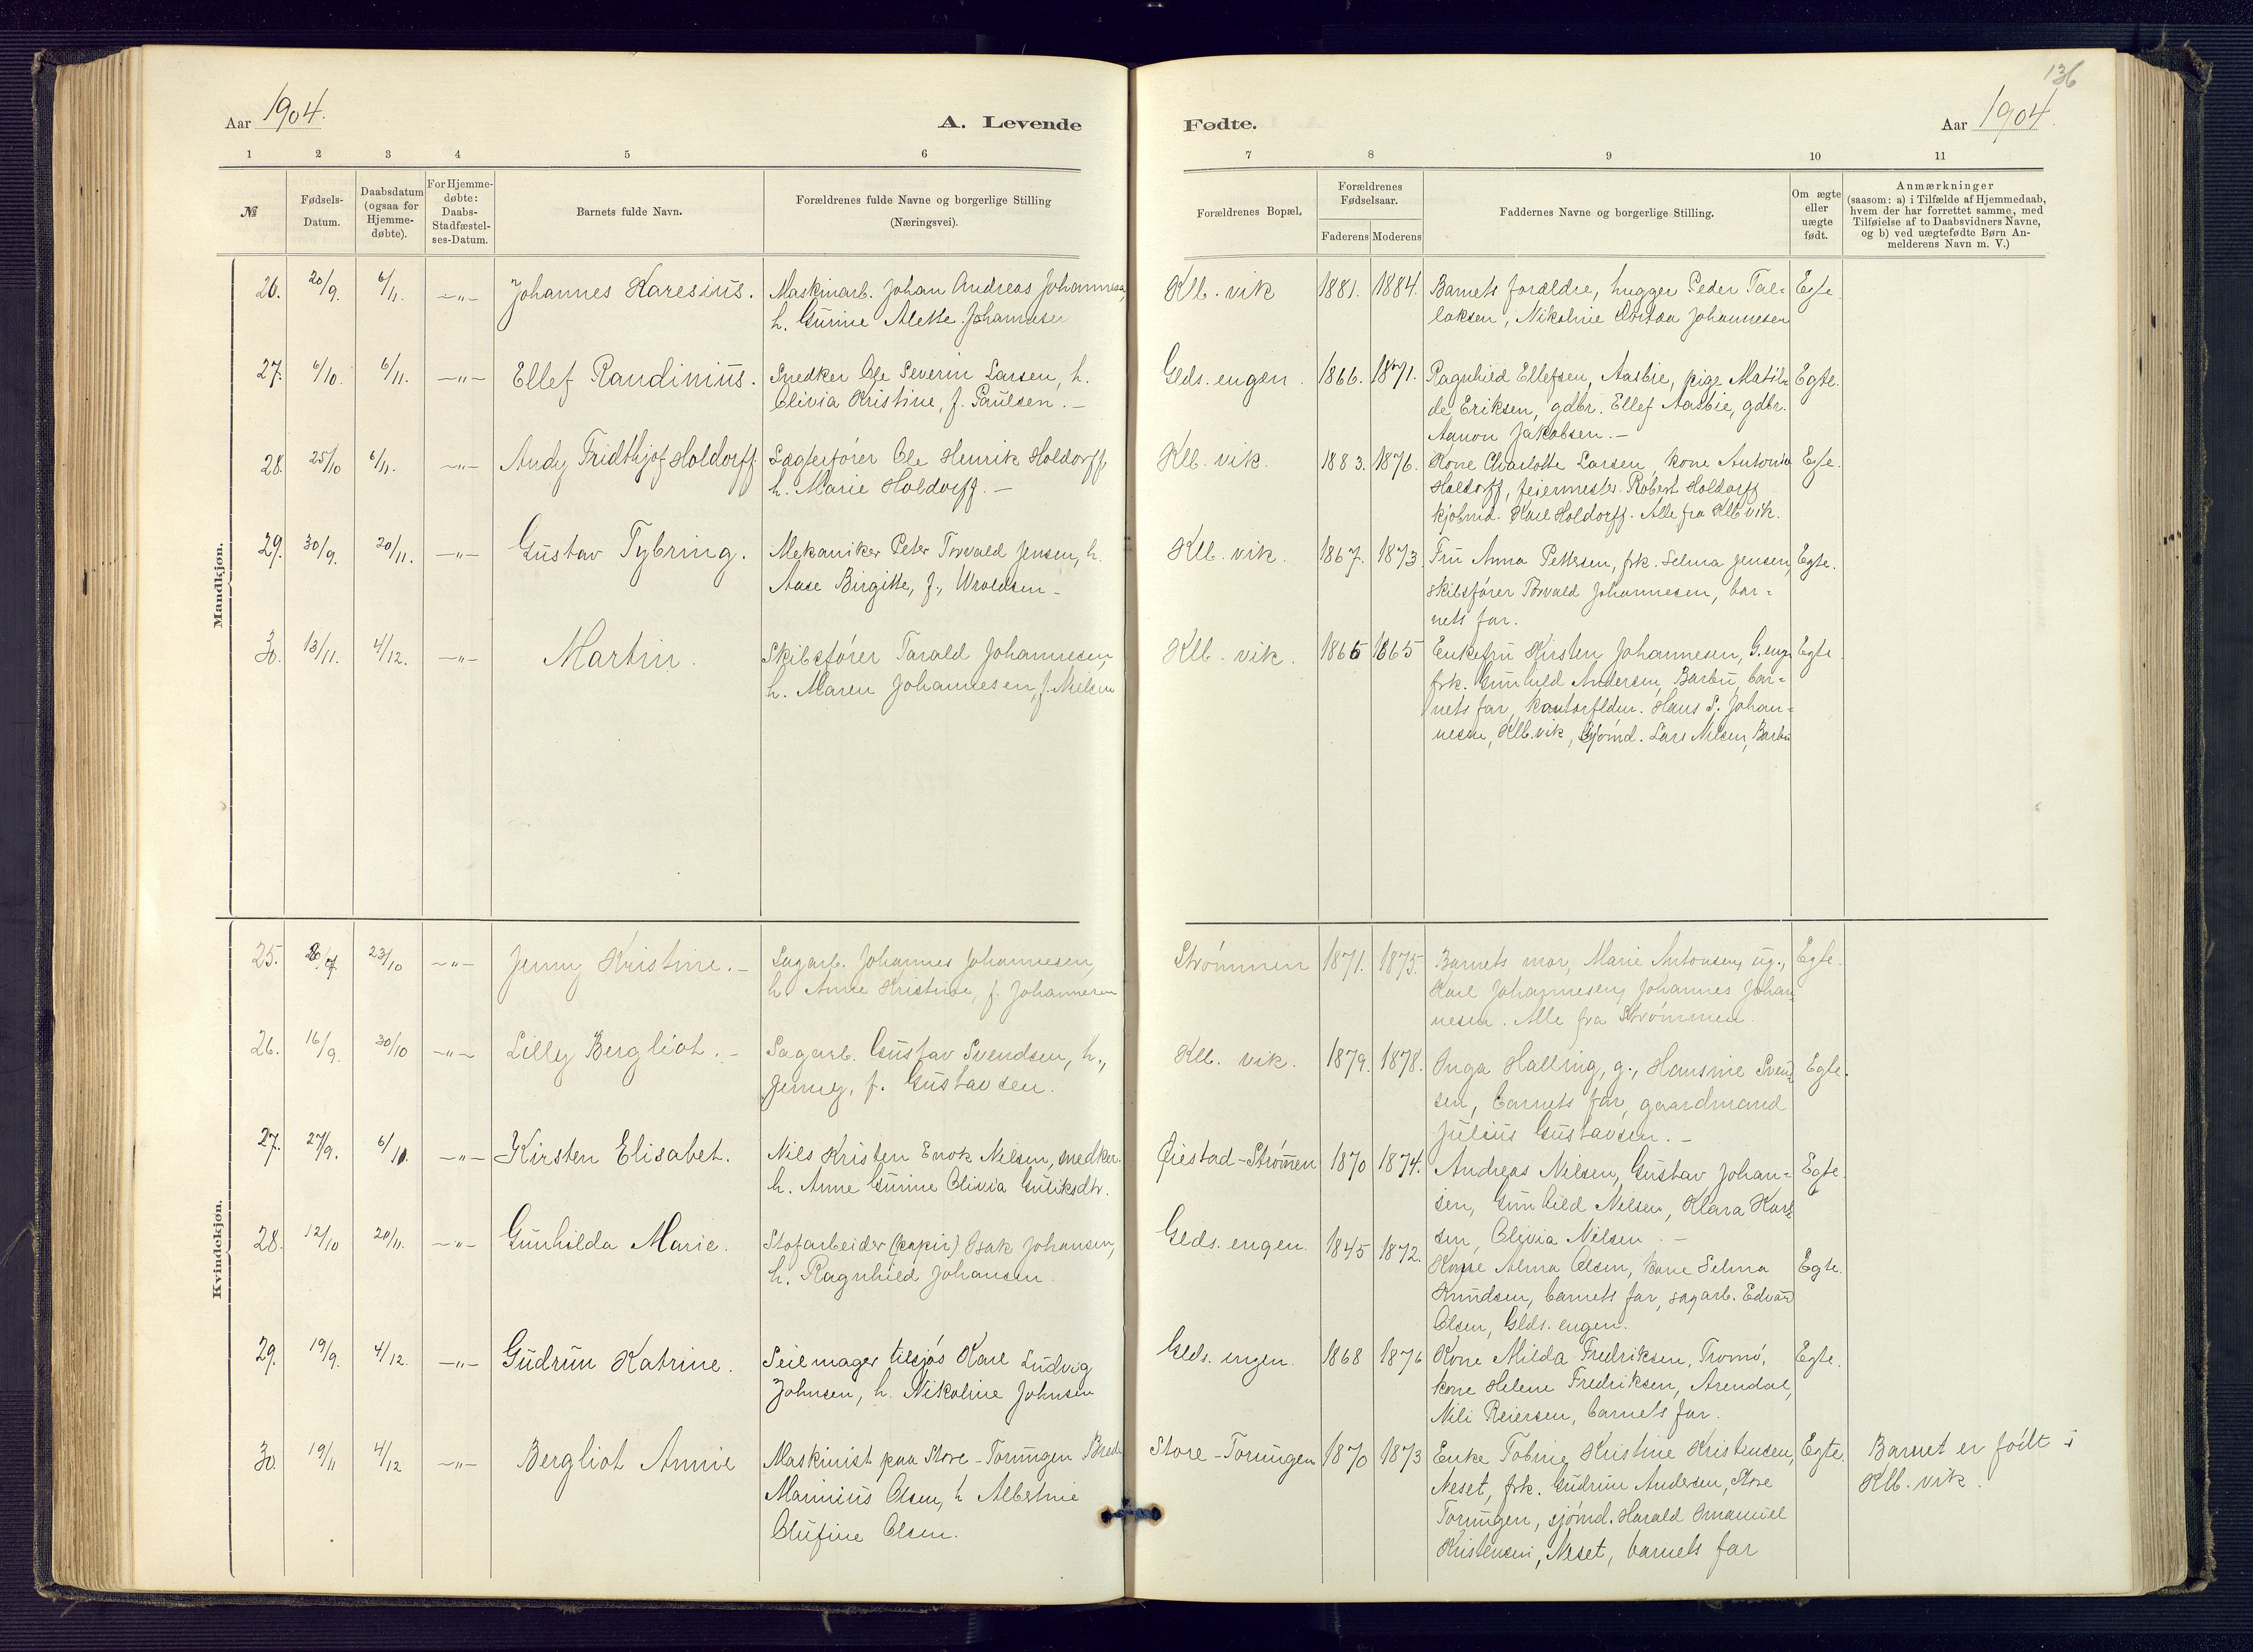 136
Aar 1904.
A. Levende
Fødte.
Aar 1904.
1 2 3 4 5 6
7 8 9 10 11
№
Fødsels-
Datum.
Daabsdatum
(ogsaa for
Hjemme-
døbte).
For Hjemme-
døbte:
Daabs-
Stadfæstel-
ses-Datum.
Barnets fulde Navn.
Forældrenes fulde Navne og borgerlige Stilling
(Næringsvei).
Forældrenes Bopæl.
Forældrenes
Fødselsaar.
Faderens Moderens
Faddernes Navne og borgerlige Stilling.
Om ægte
eller
uægte
født.
Anmærkninger
(saasom: a) i Tilfælde af Hjemmedaab,
hvem der har forrettet samme, med
Tilføielse af to Daabsvidners Navne,
og b) ved uægtefødte Børn An-
melderens Navn m. V.)
Mandkjøn.
26. 20/9. 6/11. -"- Johannes Karesius. Maskinarb. Johan Andreas Johannesen,
h. Gurine Alette Johannesen
Klb. vik 1881. 1884. Barnets forældre, hugger Peder Tal-
laksen, Nikoline Johannesen
Egte.
27. 6/10. 6/11. -"- Ellef Randinius. Snedker Ole Severin Larsen, h.
Olivia Kristine, f. Paulsen. -
Glds. engen. 1866. 1871. Ragnhild Ellefsen, Aasbie, pige Matil-
de Eriksen, gdbr. Ellef Aasbie, gdbr.
Aanon Jakobsen. -
Egte.
28. 25/10 6/11. -"- Andy Fridthjof Holdorff. Lægterfører Ole Henrik Holdorff,
h. Marie Holdorff. -
Klb. vik. 1883. 1876. Kone Charlotte Larsen, kone Antonie
Holdorff, feiermester Robert Holdorff
kjøbmd. Karl Holdorff. Alle fra Klb vik.
Egte.
29. 30/9. 20/11. -"- Gustav Tybring. Mekaniker Peter Torvald Jensen, h.
Aase Birgitte, f. Wroldsen -
Klb. vik. 1867. 1873. Fru Anna Pettersen, frk. Selma Jensen,
skibsfører Torvald Johannesen, bar-
nets far.
Egte.
30. 13/11. 4/12. -"- Martin. Skibsfører Tarald Johannesen,
h. Maren Johannesen, f. Nielsen
Klb. vik. 1866 1865 Enkefru Kirsten Johannesen, G. eng.
frk. Gunhild Andersen, Barbu, bar-
nets far, Hans P. Johan-
nesen, Klb. vik, sjømd. Lars Nilsen, Barbu
Egte.
Kvindekjøn.
25. 23/10 -"- Jenny Kristine. - Sagarb. Johannes Johannesen,
h. Anne Kristine, f. Johannesen
Strømmen 1871. 1875. Barnets mor, Marie Antonsen, ug.,
Karl Johannesen, Johannes Johan-
nesen. Alle fra Strømmen.
Egte.
26. 16/9. 30/10 -"- Lilly Bergliot. - Sagarb. Gustav Svendsen, h.,
Jenny, f. Gustavsen.
Klb. vik. 1879. 1878. Inga Halling, g., Hansine Svend-
sen, barnets far, gaardmand
Julius Gustavsen. -
Egte.
27. 27/9. 6/11. -"- Kirsten Elisabet. Nils Kristen Enok Nilsen, snedker.
h. Anne Gurine Olivia Guliksdtr.
Øiestad-Strømen 1870 1874. Andreas Nilsen, Gustav Johan-
sen, Gunhild Nilsen, Klara Karl-
sen, Olivia Nilsen. -
Egte.
28. 12/10 20/11. -"- Gunhilda Marie. Stofarbeider (papir) Isak Johansen,
h. Ragnhild Johansen.
Glds. engen. 1845 1872. Kone Alma Olsen, kone Selma
Knudsen, barnets far, sagarb. Edvard
Olsen, Glds. engen.
Egte.
29. 19/9. 4/12. -"- Gudrun Katrine. Seilmager tilsjøs Karl Ludvig
Johnsen, h. Nikoline Johnsen
Glds. engen. 1868 1876 Kone Milda Fredriksen, Tromø,
kone Helene Fredriksen, Arendal,
Nili Reiersen, barnets far.
Egte.
30. 19/11 4/12 -"- Bergliot Annie Maskinist paa Store-Torungen
Marinius Olsen, h Albertine
Olufine Olsen.
Store-Torungen 1870 1873 Enke Tobine Kristine Kristensen,
Neset, frk. Gudrun Andersen, Store
Torungen, sjømd. Harald Emanuel
Kristensen, Neset, barnets far
Egte. Barnet er født i
Klb. vik.